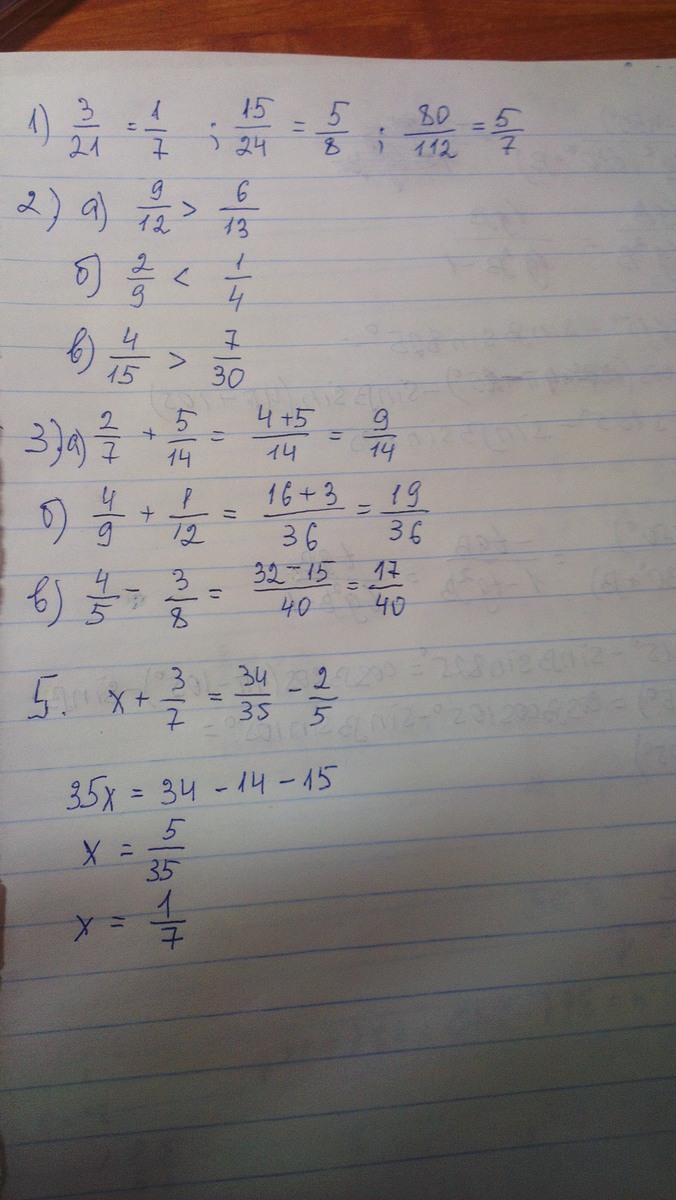 1) 3/21 = 1/7 ; 15/24 = 5/8 ; 80/112 = 5/7
2) а) 9/12 > 6/13
б) 2/9 < 1/4
в) 4/15 > 7/30
3) а) 2/7 + 5/14 = (4+5)/14 = 9/14
б) 4/9 + 1/12 = (16+3)/36 = 19/36
в) 4/5 - 3/8 = (32-15)/40 = 17/40
5. x + 3/7 = 34/35 - 2/5
35x = 34 - 14 - 15
x = 5/35
x = 1/7